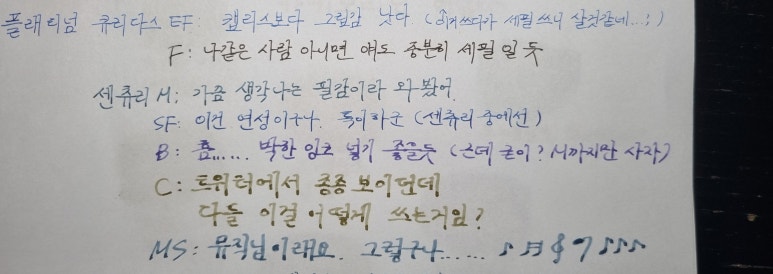 플래티넘 큐리다스 EF: 캡리스보다 그립감 낫다 (이거쓰다가 세필 쓰니 살것같네...;)
F: 나같은 사람 아니면 얘도 충분히 세필일 듯
센츄리 M: 가끔 생각나는 필감이라 와 봤어.
SF: 이건 연성이구나. 독이하군 (센츄리 중에선)
B: 흠...... 박한 잉크 넣기 좋을듯 (근데 굳이? M까지만 사자)
C: 트위터에서 종종 보이던데
다들 이걸 어떻게 쓰는거임?
MS: 뮤직닙이래요. 그렇구나...... ♪ ♬ 𝄞 𝄾 ♪ ♪ ♪